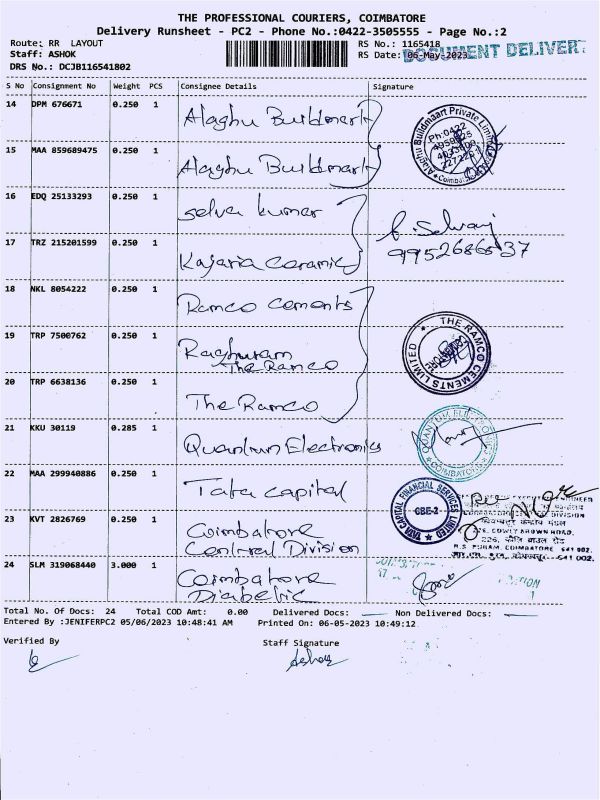 THE PROFESSIONAL COURIERS, COIMBATORE
Delivery Runsheet - PC2 - Phone No.:0422-3505555 - Page No.:2
Route: RR LAYOUT
RS No.: 1165418
Staff: ASHOK
RS Date: 06-May-2023
DOCUMENT DELIVERY
DRS No.: DCJB116541802
S No Consignment No Weight PCS Consignee Details Signature
14 DPM 676671 0.250 1 Alaghu Buildmart
15 MAA 859689475 0.250 1 Alaghu Buildmart
Alaghu Buildmaart Private Limited
Ph:0422
Coimbatore
16 EDQ 25133293 0.250 1 selva kumar
17 TRZ 215201599 0.250 1 Kajaria Ceramic
P. Selvaraj
9952686537
18 NKL 8054222 0.250 1 Ramco Cements
19 TRP 7500762 0.250 1 Raghuram
The Ramco
THE RAMCO CEMENTS LIMITED
20 TRP 6638136 0.250 1 The Ramco
21 KKU 30119 0.285 1 Quantum Electronics
QUANTUM ELECTRONICS
COIMBATORE
22 MAA 299940886 0.250 1 Tata Capital
TATA CAPITAL FINANCIAL SERVICES LIMITED
CBE-2
23 KVT 2826769 0.250 1 Coimbatore
Central Division
226, COWLY BROWN ROAD,
R.S. PURAM, COIMBATORE - 641 002.
24 SLM 319068440 3.000 1 Coimbatore
Diabetic
Total No. Of Docs: 24 Total COD Amt: 0.00 Delivered Docs: Non Delivered Docs:
Entered By :JENIFERPC2 05/06/2023 10:48:41 AM Printed On: 06-05-2023 10:49:12
Verified By
Staff Signature
Ashok